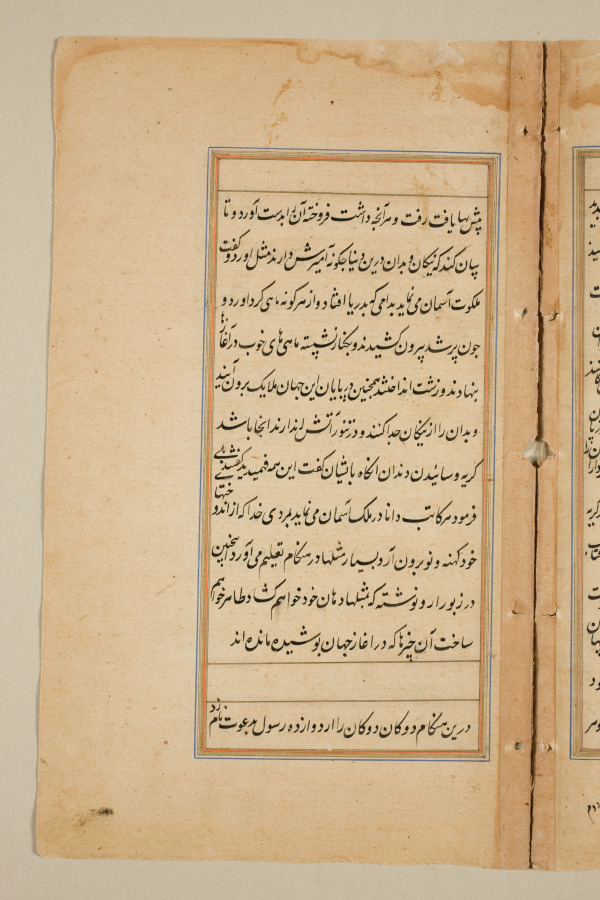 بیش بها یافت رفت و هر آنچه داشت فروخته آن را بدست آورد و تا
بیان کند که نیکان و بدان درین دنیا چگونه آمیزش دارند مثل آورد و گفت
ملکوت آسمان می نماید بدامی که بدریا افتاد و از هر گونه ماهی گرد آورد و
چون پر شد بیرون کشیدند و بکنار نشسته ماهی های خوب در آغازها
بنهادند و زشت انداختند همچنین در پایان این جهان ملایک برون آیند
و بدان را از نیکان جدا کنند و در تنور آتش اندازند انجا باشد
گریه و سائیدن دندان انگاه بایشان گفت این همه فهمیدید گفتند بلی
فرمود هر کاتب دانا در ملک آسمان می نماید بمردی خدا که از اندوختها
خود کهنه و نو برون آرد بسیار مثلها در هنگام تعلیم می آورد همچنین
در زبور او نوشته که بمثلها دهان خود خواهم کشاد ظاهر خواهم
ساخت آن چیزها که در آغاز جهان پوشیده مانده اند
درین هنگام دوکان دوکان را از دوازده رسول بدعوت نامزد